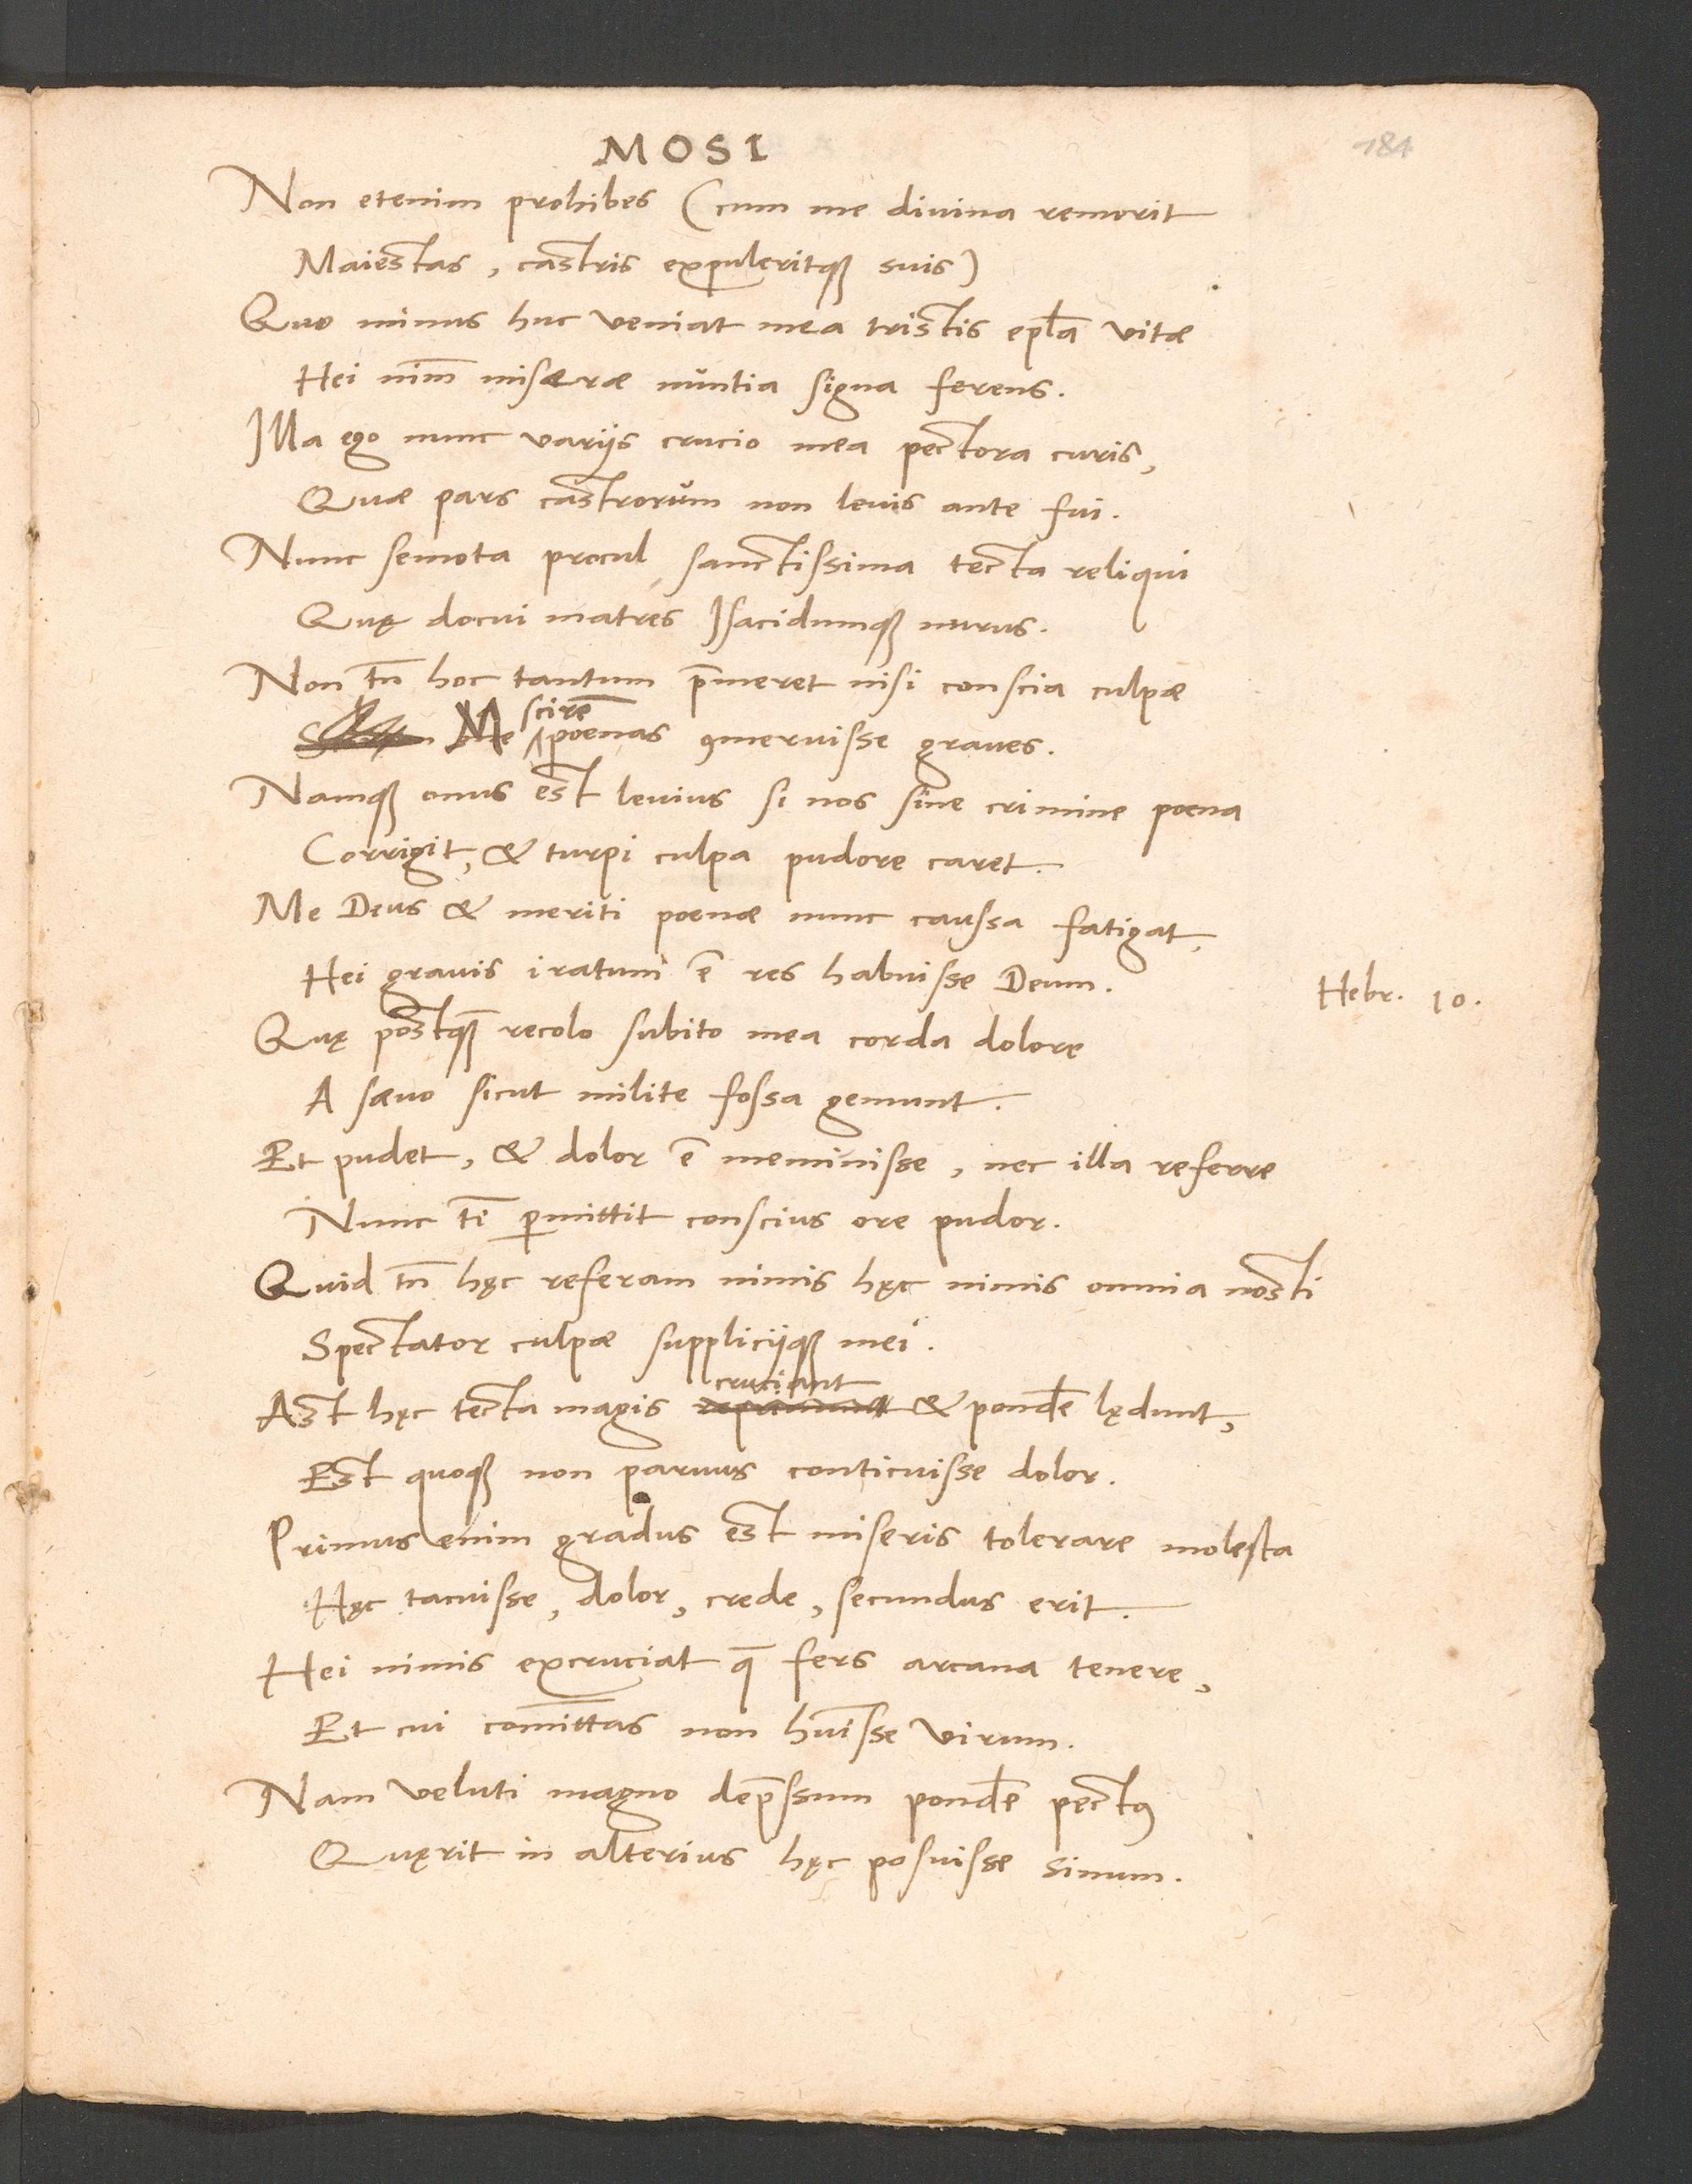 MOSI
184
Non etenim prohibes (cum me divina remorit
Maiestas, castris expuleritque suis)
Quo minus huc veniat mea tristis epl̄a vitæ
Hei nim̄ miseræ nuntia signa ferens.
Illa ego nunc variis crucio mea pectora curis,
Quæ pars castrorum non levis ante fui.
Nunc semota procul sanctissima tecta reliqui
Quę docui matres Isacidumque nurus.
Non tn̄ hoc tantum p̄meret nisi conscia culpæ
scirē
Me poenas ꝯmeruisse graves.
Namque onus est levius si nos sine crimine poena
Corrigit, & turpi culpa pudore caret.
Me Deus & meriti poenæ nunc caussa fatigat,
Hei gravis iratum ē res habuisse Deum.
Hebr. 10.
Quę postquā recolo subito mea corda dolore
A sævo sicut milite fossa gemunt.
Et pudet, & dolor ē meminisse, nec illa referre
Nunc tī p̄mittit conscius ore pudor.
Quid tn̄ hęc referam nimis hęc nimis omnia nosti
Spectator culpæ suppliciique mei.
cruciant
Ast hęc tecta magis & pondē lędunt,
Est quoque non parvus conticuisse dolor.
Primus enim gradus est miseris tolerare molesta
Hęc tacuisse, dolor, crede, secundus erit.
Hei nimis excruciat q̄ fers arcana tenere,
Et cui com̄ittas non hūisse virum.
Nam veluti magno dep̄ssum pondē pectꝰ
Quęrit in alterius hęc posuisse sinum.